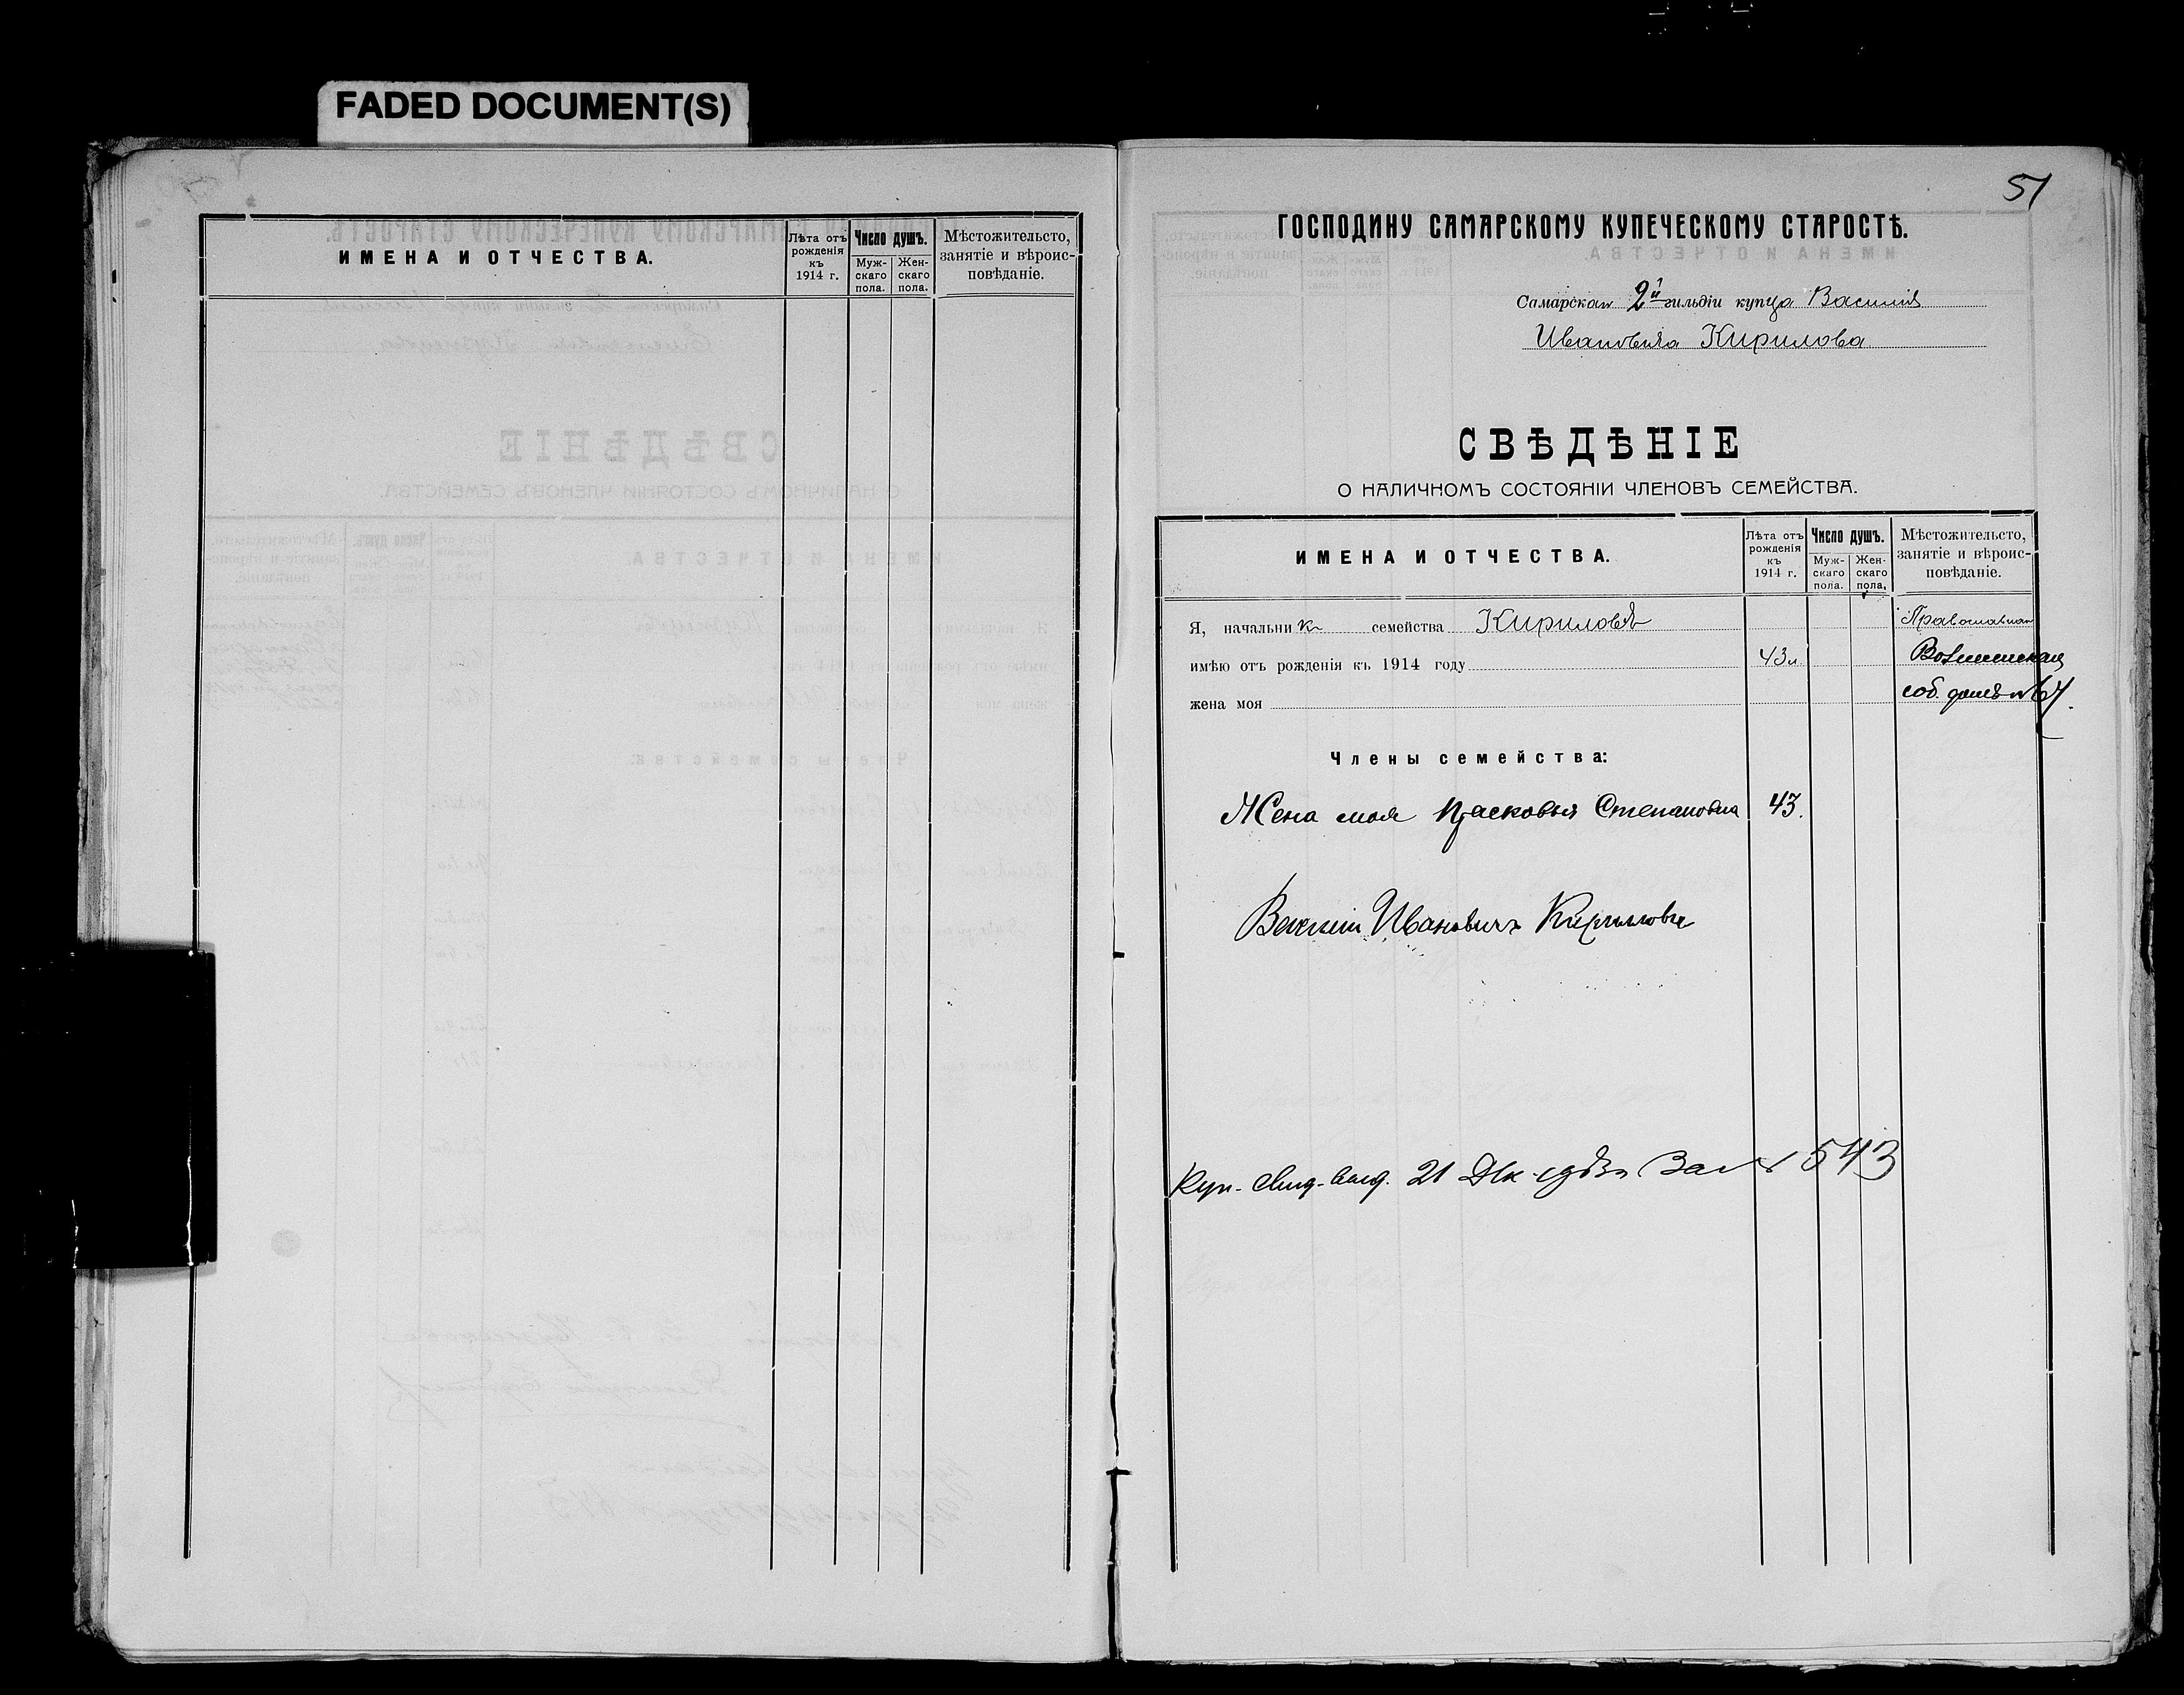 FADED DOCUMENT(S)
ИМЕНА И ОТЧЕСТВА.
Лѣта отъ рожденія къ 1914 г.
Число душъ.
Муж-скаго пола.
Жен-скаго пола.
Мѣстожительсто, занятіе и вѣроис-повѣданіе.
51
ГОСПОДИНУ САМАРСКОМУ КУПЕЧЕСКОМУ СТАРОСТѢ.
Самарскаго 2й гильдіи купца Василія
Ивановича Кирилова
СВѢДѢНІЕ
О НАЛИЧНОМЪ СОСТОЯНІИ ЧЛЕНОВЪ СЕМЕЙСТВА.
ИМЕНА И ОТЧЕСТВА.
Лѣта отъ рожденія къ 1914 г.
Число душъ.
Муж-скаго пола.
Жен-скаго пола,
Мѣстожительсто, занятіе и вѣроис-повѣданіе.
Я, начальник семейства Кириловъ
имѣю отъ рожденія къ 1914 году 43л.
жена моя соб. домъ №
Члены семейства:
Жена моя Прасковья Степановна 43.
Василий Ивановичъ Кирилловъ
Куп. Свид. выд. 21 Дек. За № 543